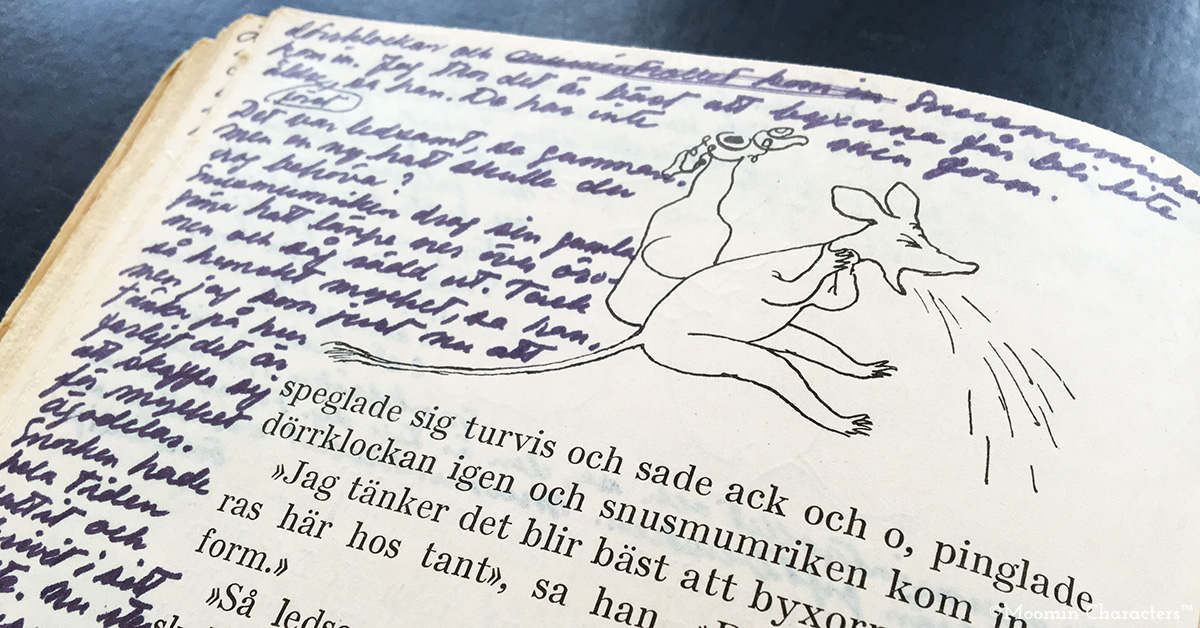 dörrklockan och mumintrollet kom in Snusmumriken
kom in. Jag tror det är bäst att byxorna får bli lite
äldre, sa han. De har inte sin form.
Det var ledsamt, sa gumman.
men en ny hatt skulle du
väl behöva?
Snusmumriken drog sin gamla
gröna hatt längre ner över öro-
nen och såg rädd ut. Tack
så hemskt mycket, sa han,
men jag kom just nu att
tänka på hur
farligt det är
att skaffa sig
för mycket
ägodelar.
Snorken hade
hela tiden
suttit och
skrivit i sitt
nu
speglade sig turvis och sade ack och o, pinglade
dörrklockan igen och snusmumriken kom in
»Jag tänker det blir bäst att
ras här hos tant», sa han
form.»
»Så
©Moomin Characters™